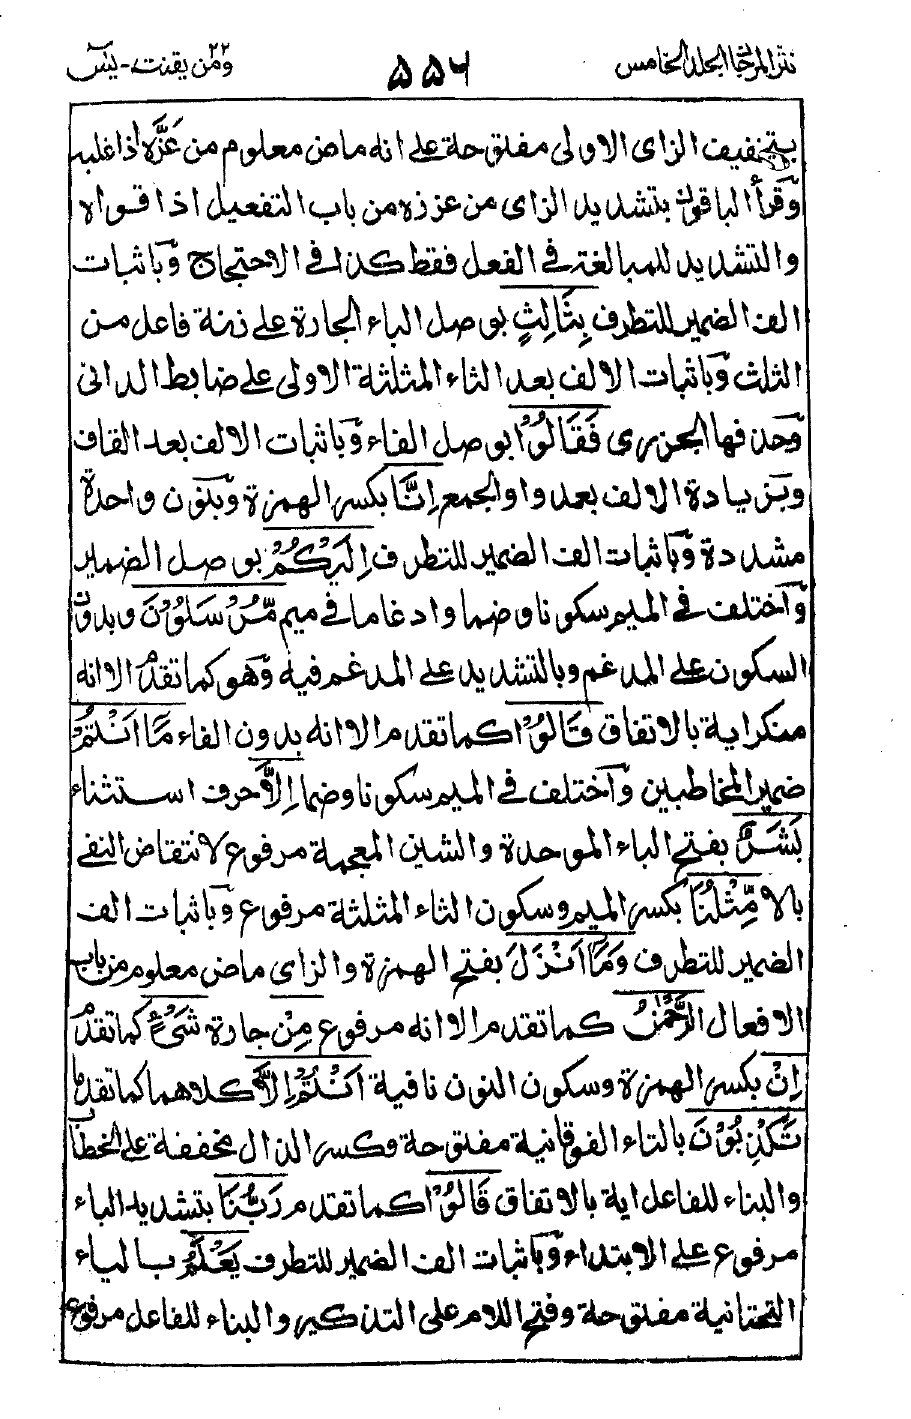 نثر المرجان المجلد الخامس
۵۵۶
ومن يقنت ۲۲ - يٰسٓ
بتخفيف الزاى الاولى مفتوحة على انه ماض معلوم من عَزَّه اذا غلبه
وقرأ الباقون بتشديد الزاى من عززه من باب التفعيل اذا قواه
والتشديد للمبالغة فى الفعل فقط كذا فى الاحتجاج وباثبات
الف الضمير للتطرف بِثَالِثٍ بوصل الباء الجارة على زنة فاعل من
الثلث وباثبات الالف بعد الثاء المثلثة الاولى على ضابط الدانى
وحذفها الجزرى فَقَالُوْٓا بوصل الفاء وباثبات الالف بعد القاف
وبزيادة الالف بعد واو الجمع اِنَّآ بكسر الهمزة وبنون واحدة
مشددة وباثبات الف الضمير للتطرف اِلَيْكُمْ بوصل الضمير
واختلف فى الميم سكونا وضما وادغاما فى ميم مُّرْسَلُوْنَ وبدون
السكون على المدغم وبالتشديد على المدغم فيه وهو كما تقدم الا انه
منكر اية بالاتفاق قَالُوْا كما تقدم الا انه بدون الفاء مَآ اَنْتُمْ
ضمير المخاطبين واختلف فى الميم سكونا وضما اِلَّا حرف استثناء
بَشَرٌ بفتح الباء الموحدة والشين المعجمة مرفوع لانتقاض النفى
بالا مِّثْلُنَا بكسر الميم وسكون الثاء المثلثة مرفوع وباثبات الف
الضمير للتطرف وَمَآ اَنْزَلَ بفتح الهمزة والزاى ماض معلوم من باب
الافعال الرَّحْمٰنُ كما تقدم الا انه مرفوع مِنْ جارة شَىْءٍ كما تقدم
اِنْ بكسر الهمزة وسكون النون نافية اَنْتُمْ اِلَّا كلاهما كما تقدما
تَكْذِبُوْنَ بالتاء الفوقانية مفتوحة وكسر الذال مخففة على الخطاب
والبناء للفاعل اية بالاتفاق قَالُوْا كما تقدم رَبُّنَا بتشديد الباء
مرفوع على الابتداء وباثبات الف الضمير للتطرف يَعْلَمُ بالياء
التحتانية مفتوحة وفتح اللام على التذكير والبناء للفاعل مرفوع